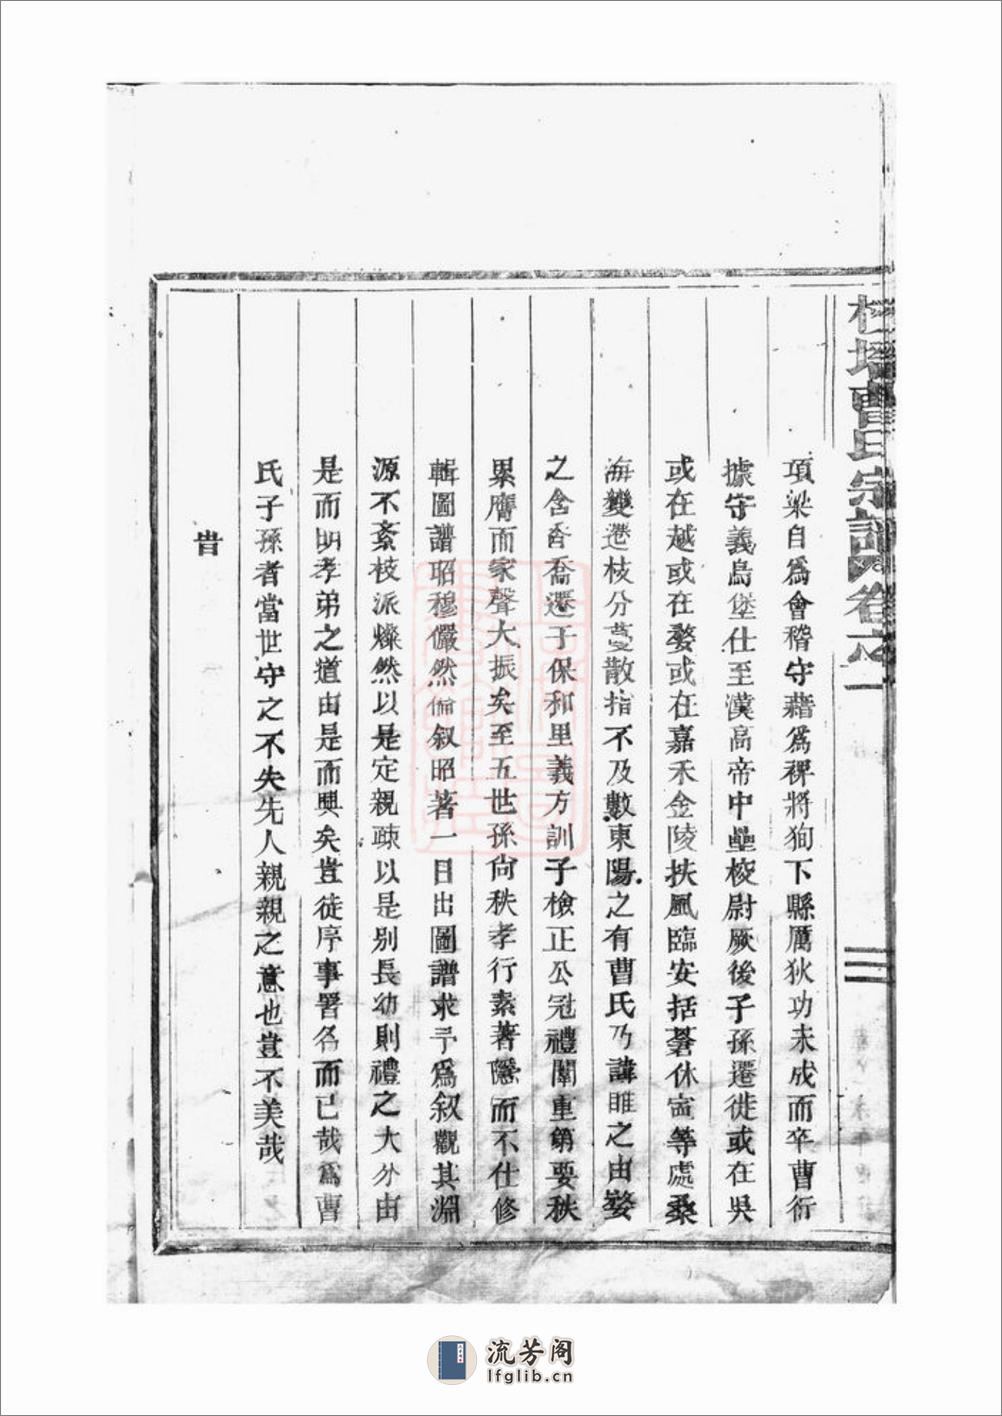 曹氏宗譜卷之一
項梁自爲會稽守藉爲裨將狥下縣厲狄功未成而卒曹衍
據守義烏堡仕至漢高帝中壘校尉厥後子孫遷徙或在吳
或在越或在婺或在嘉禾金陵扶風臨安括蒼休寧等處桑
海變遷枝分蔓散指不及數東陽之有曹氏乃諱睢之由婺
之含香喬遷于保和里義方訓子檢正公冠禮闈重第要秩
累膺而家聲大振矣至五世孫尙秩孝行素著隱而不仕修
輯圖譜昭穆儼然倫叙昭著一目出圖譜求予爲叙觀其淵
源不紊枝派燦然以是定親疎以是別長幼則禮之大分由
是而明孝弟之道由是而興矣豈徒序事署名而已哉爲曹
氏子孫者當世守之不失先人親親之意也豈不美哉
旹
流芳阁
lfglib.cn